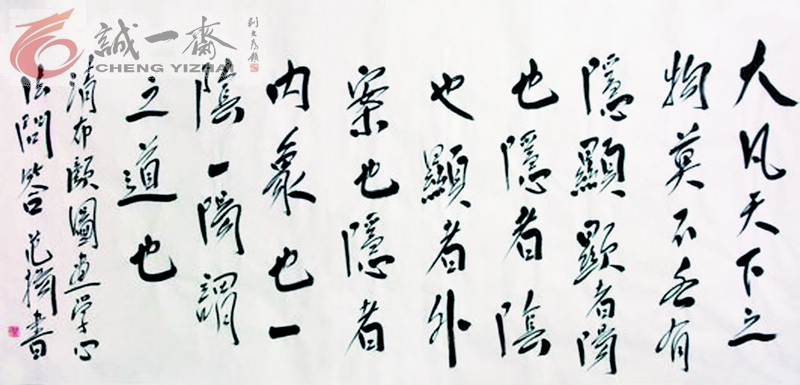 誠一齋
CHENG YIZHAI
大凡天下之
物莫不各有
隱顯顯者陽
也隱者陰
也顯者外
案也隱者
内象也一
陰一陽謂
之道也
清布顏圖畫學心
法問答范書